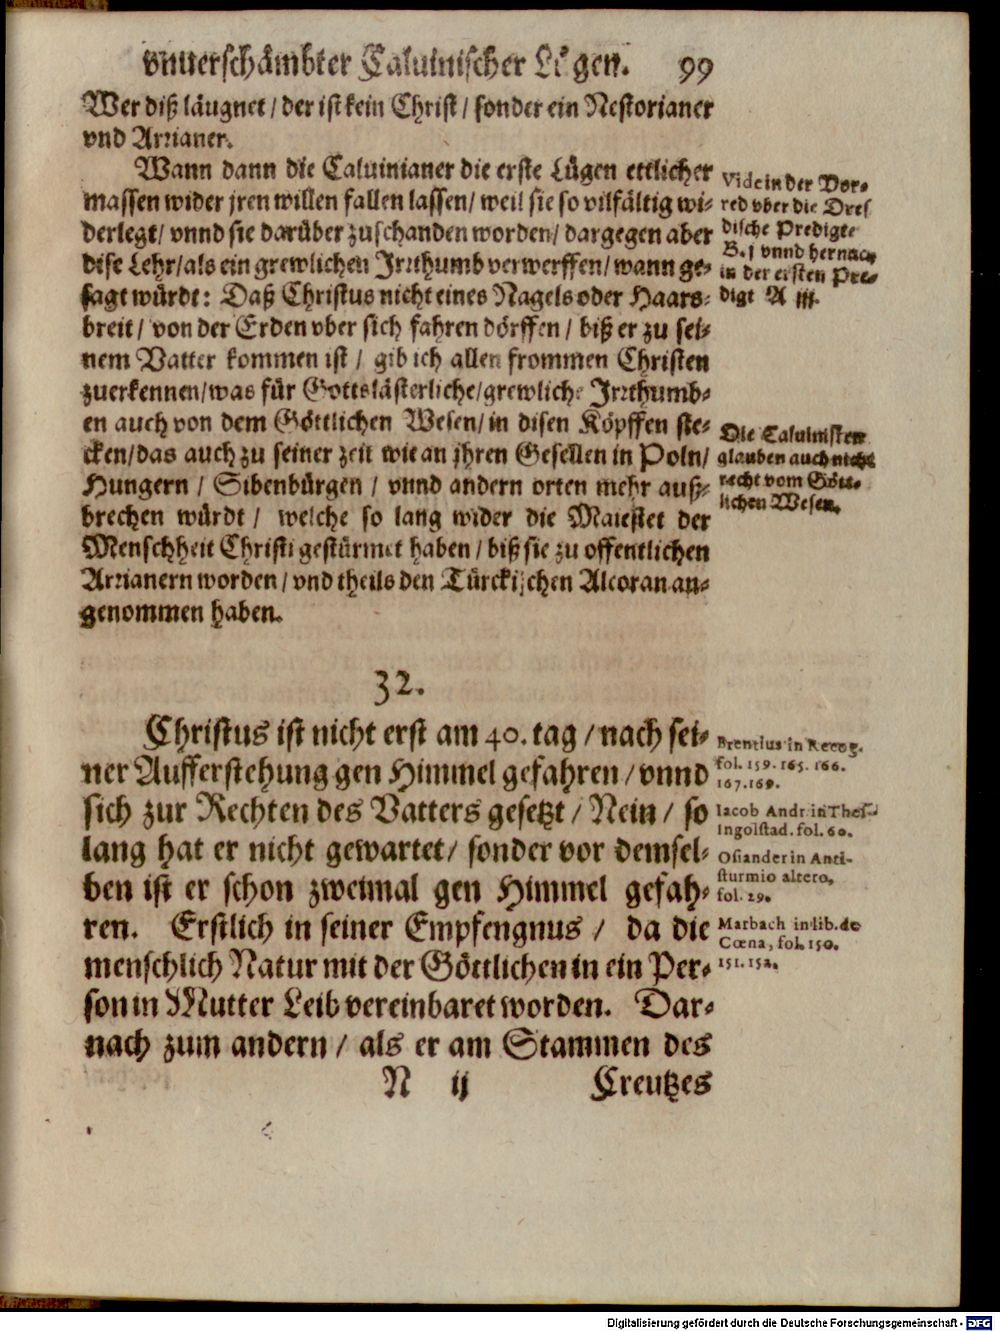 vnuerschämbter Caluinischer Lügen. 99
Wer diß läugnet / der ist kein Christ / sonder ein Nestorianer
vnd Arrianer.
Wann dann die Caluinianer die erste Lügen ettlicher
massen wider jren willen fallen lassen / weil sie so vilfältig wi⸗
derlegt / vnnd sie darüber zuschanden worden / dargegen aber
dise Lehr / als ein grewlichen Irrthumb verwerffen / wann ge⸗
sagt würdt: Daß Christus nicht eines Nagels oder Haars⸗
breit / von der Erden vber sich fahren dörffen / biß er zu sei⸗
nem Vatter kommen ist / gib ich allen frommen Christen
zuerkennen / was für Gottslästerliche / grewliche Irrthumb⸗
en auch von dem Göttlichen Wesen / in disen Köpffen ste⸗
cken / das auch zu seiner zeit wie an jhren Gesellen in Poln /
Hungern / Sibenbürgen / vnnd andern orten mehr auß⸗
brechen würdt / welche so lang wider die Maiestet der
Menschheit Christi gestürmet haben / biß sie zu offentlichen
Arrianern worden / vnd theils den Türckischen Alcoran an⸗
genommen haben.
Vide in der Vor⸗
red vber die Dres
dische Predigte
B. j vnnd hernach
in der ersten Pre⸗
digt A iij.
Die Caluinisten
glauben auch nicht
recht vom Gött⸗
lichen Wesen.
32.
Christus ist nicht erst am 40. tag / nach sei⸗
ner Aufferstehung gen Himmel gefahren / vnnd
sich zur Rechten des Vatters gesetzt / Nein / so
lang hat er nicht gewartet / sonder vor demsel⸗
ben ist er schon zweimal gen Himmel gefah⸗
ren. Erstlich in seiner Empfengnus / da die
menschlich Natur mit der Göttlichen in ein Per⸗
son in Mutter Leib vereinbaret worden. Dar⸗
nach zum andern / als er am Stammen des
Brentius in Recog.
fol. 159. 165. 166.
167. 169.
Iacob Andr. in Thes.
Ingolstad. fol. 60.
Osiander in Anti-
sturmio altero,
fol. 29.
Marbach in lib. de
Cœna, fol. 150.
151. 152.
N ij Creutzes
Digitalisierung gefördert durch die Deutsche Forschungsgemeinschaft - DFG